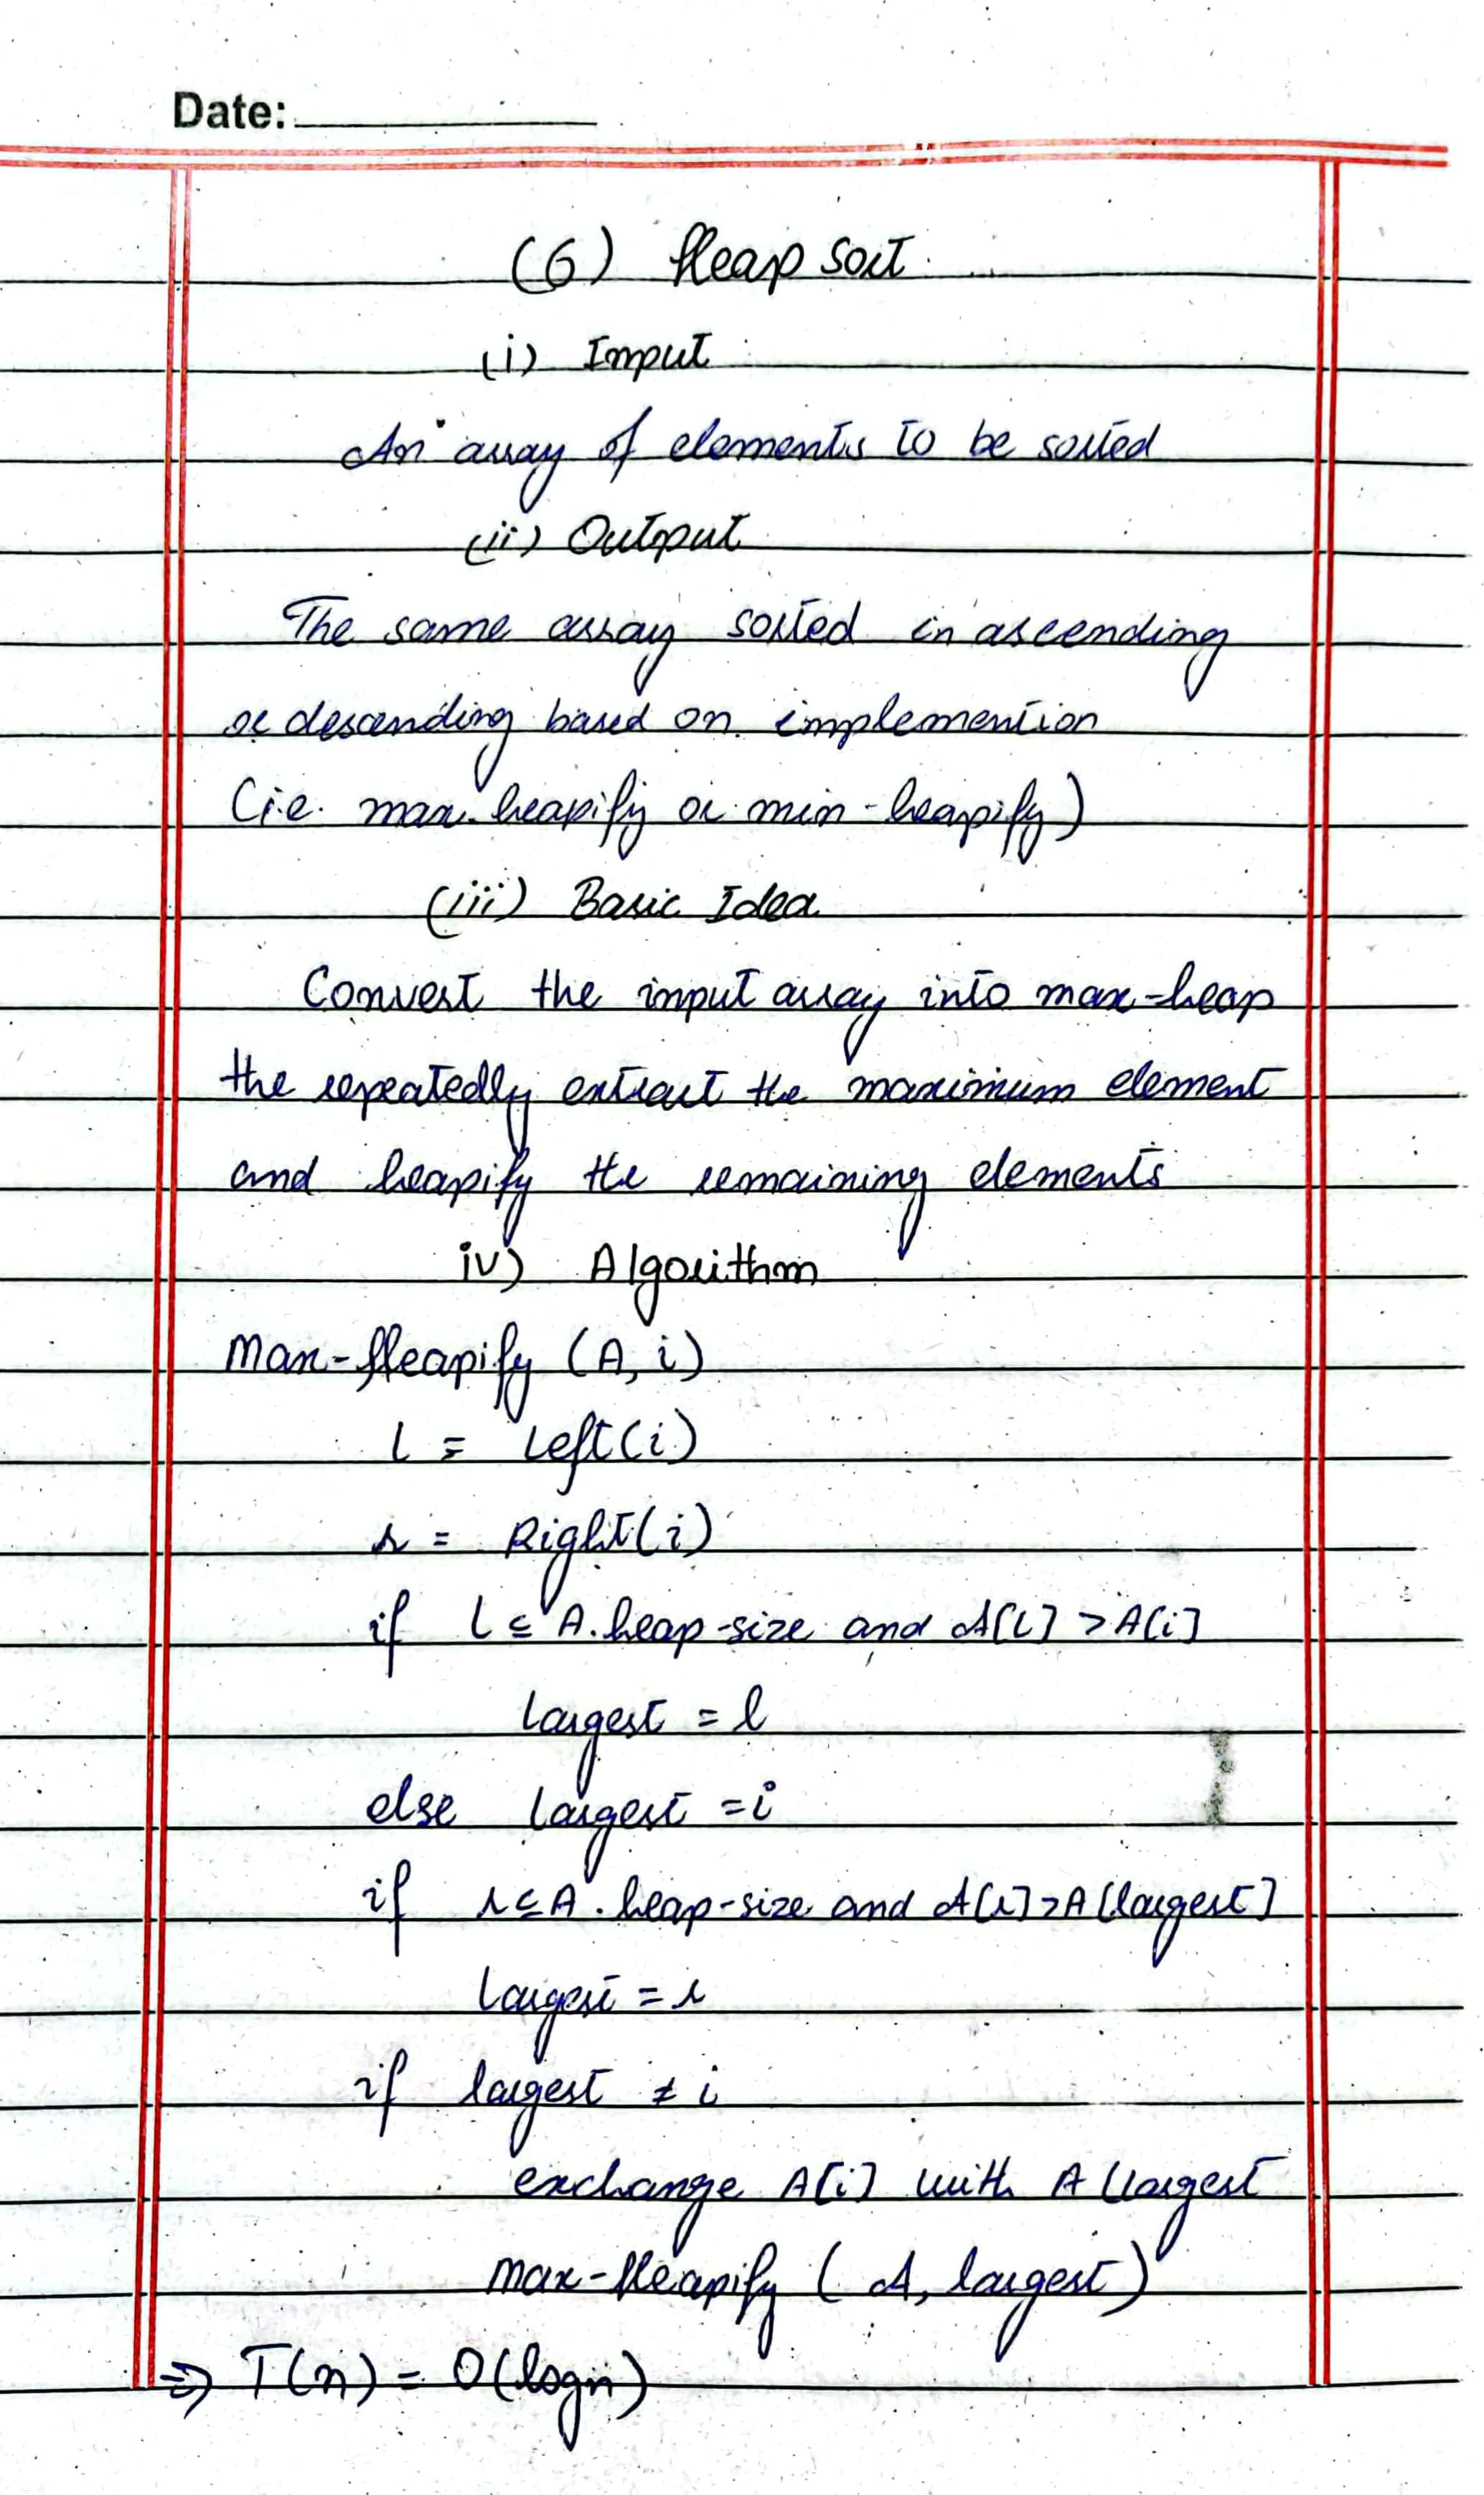 Date:
(6) Heap sort
(i) Input
An array of elements to be sorted
(ii) Output
The same array sorted in ascending
or descending based on implemention
(i.e. max-heapify or min-heapify)
(iii) Basic Idea
Convert the input array into max-heap
the repeatedly extract the maximum element
and heapify the remaining elements
iv) Algorithm
Max-Heapify (A, i)
l = Left(i)
r = Right(i)
if l ≤ A.heap-size and A[l] > A[i]
largest = l
else largest = i
if r ≤ A.heap-size and A[r] > A[largest]
largest = r
if largest ≠ i
exchange A[i] with A[largest
max-Heapify (A, largest)
⇒ T(n) = O(logn)